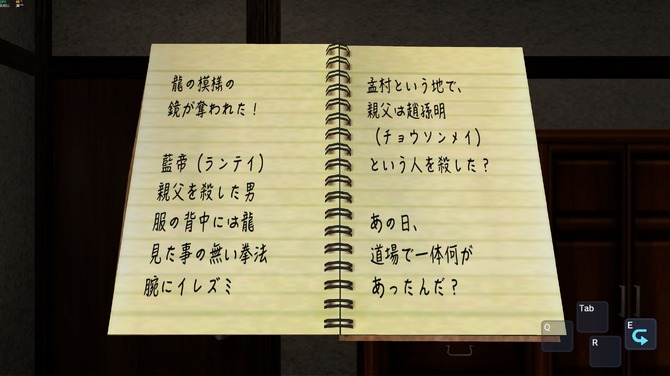 龍の模様の
鏡が奪われた！
藍帝（ランテイ）
親父を殺した男
服の背中には龍
見た事の無い拳法
腕にイレズミ
孟村という地で、
親父は趙孫明
（チョウソンメイ）
という人を殺した？
あの日、
道場で一体何が
あったんだ？
Tab
Q
E
R